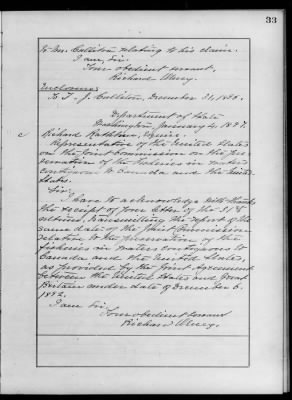 33
to Mr. Culliton relating to his claim.
I am, Sir,
Your obedient servant,
Richard Olney.
Enclosure:
To T. J. Culliton, December 31, 1896.
Department of State
Washington, January 4, 1897.
Richard Rathbun, Esquire.
Representative of the United States
on the Joint Commission on the Pre-
servation of the Fisheries in waters
contiguous to Canada and the United
States.
Sir:
I have to acknowledge with thanks
the receipt of your letter of the 31st
ultimo, transmitting the report of the
same date of the Joint Commission
relative to the preservation of the
fisheries in waters contiguous to
Canada and the United States,
as provided by the joint agreement
between the United States and Great
Britain under date of December 6,
1892.
I am Sir,
Your obedient servant
Richard Olney.